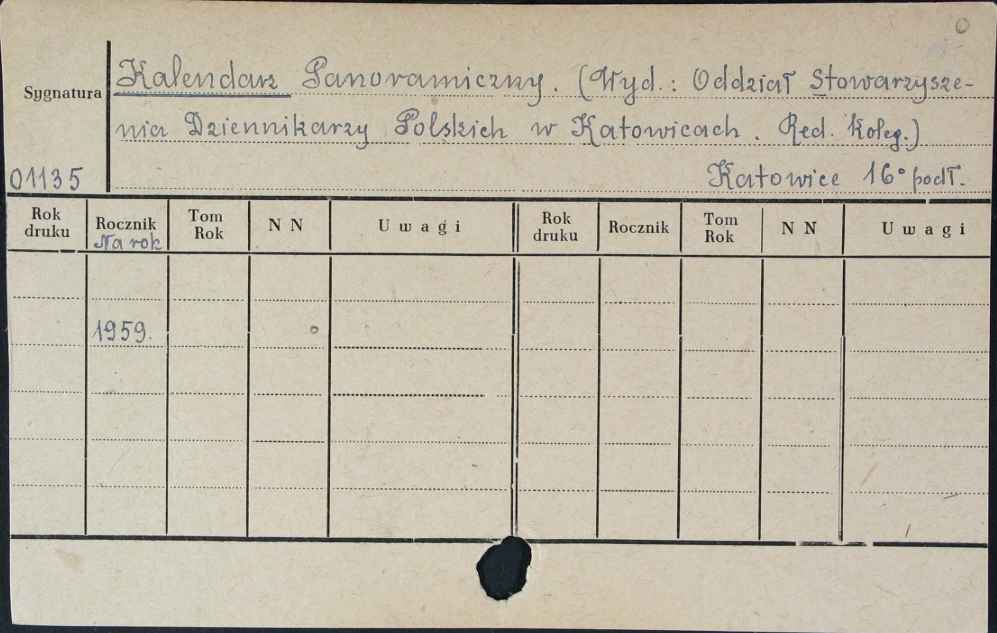 0
Kalendarz Panoramiczny. (Wyd.: Oddział Stowarzysze-
Sygnatura
nia Dziennikarzy Polskich w Katowicach. Red. Koleg.)
01135
Katowice 16° podł.
Rok druku Rocznik Na rok Tom Rok NN Uwagi Rok druku Rocznik Tom Rok NN Uwagi
1959.